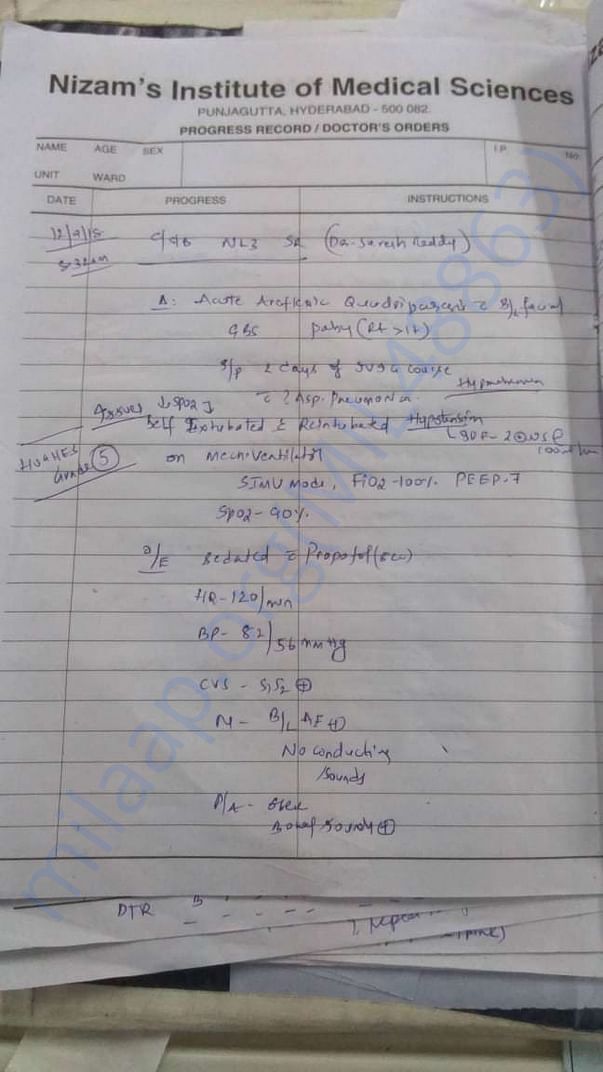 Nizam's Institute of Medical Sciences
PUNJAGUTTA, HYDERABAD - 500 082.
PROGRESS RECORD / DOCTOR'S ORDERS
NAME AGE SEX I.P. No.
UNIT WARD
DATE PROGRESS INSTRUCTIONS
C/S/B NL3 SR (Dr. Suresh Reddy)
Δ: Acute Areflexic Quadriparesis c̄ B/L facial
GBS palsy (Rt > lt)
S/p 2 days of IVIG course
c̄ ? Asp. Pneumonia
Issues ↓SpO2↓
Self Extubated & Reintubated Hypotension
HUGHES Grade 5
on Mech. Ventilator
SIMV Mode, FiO2-100% PEEP-7
SpO2-90%
O/E Sedated c̄ Propofol
HR-120/min
BP- 82/56 mmHg
CVS - S1S2 ⊕
B/L AE ⊕
No conducting
sounds
P/A -
Bowel Sounds ⊕
DTR B
milaap.org(MIL438863)